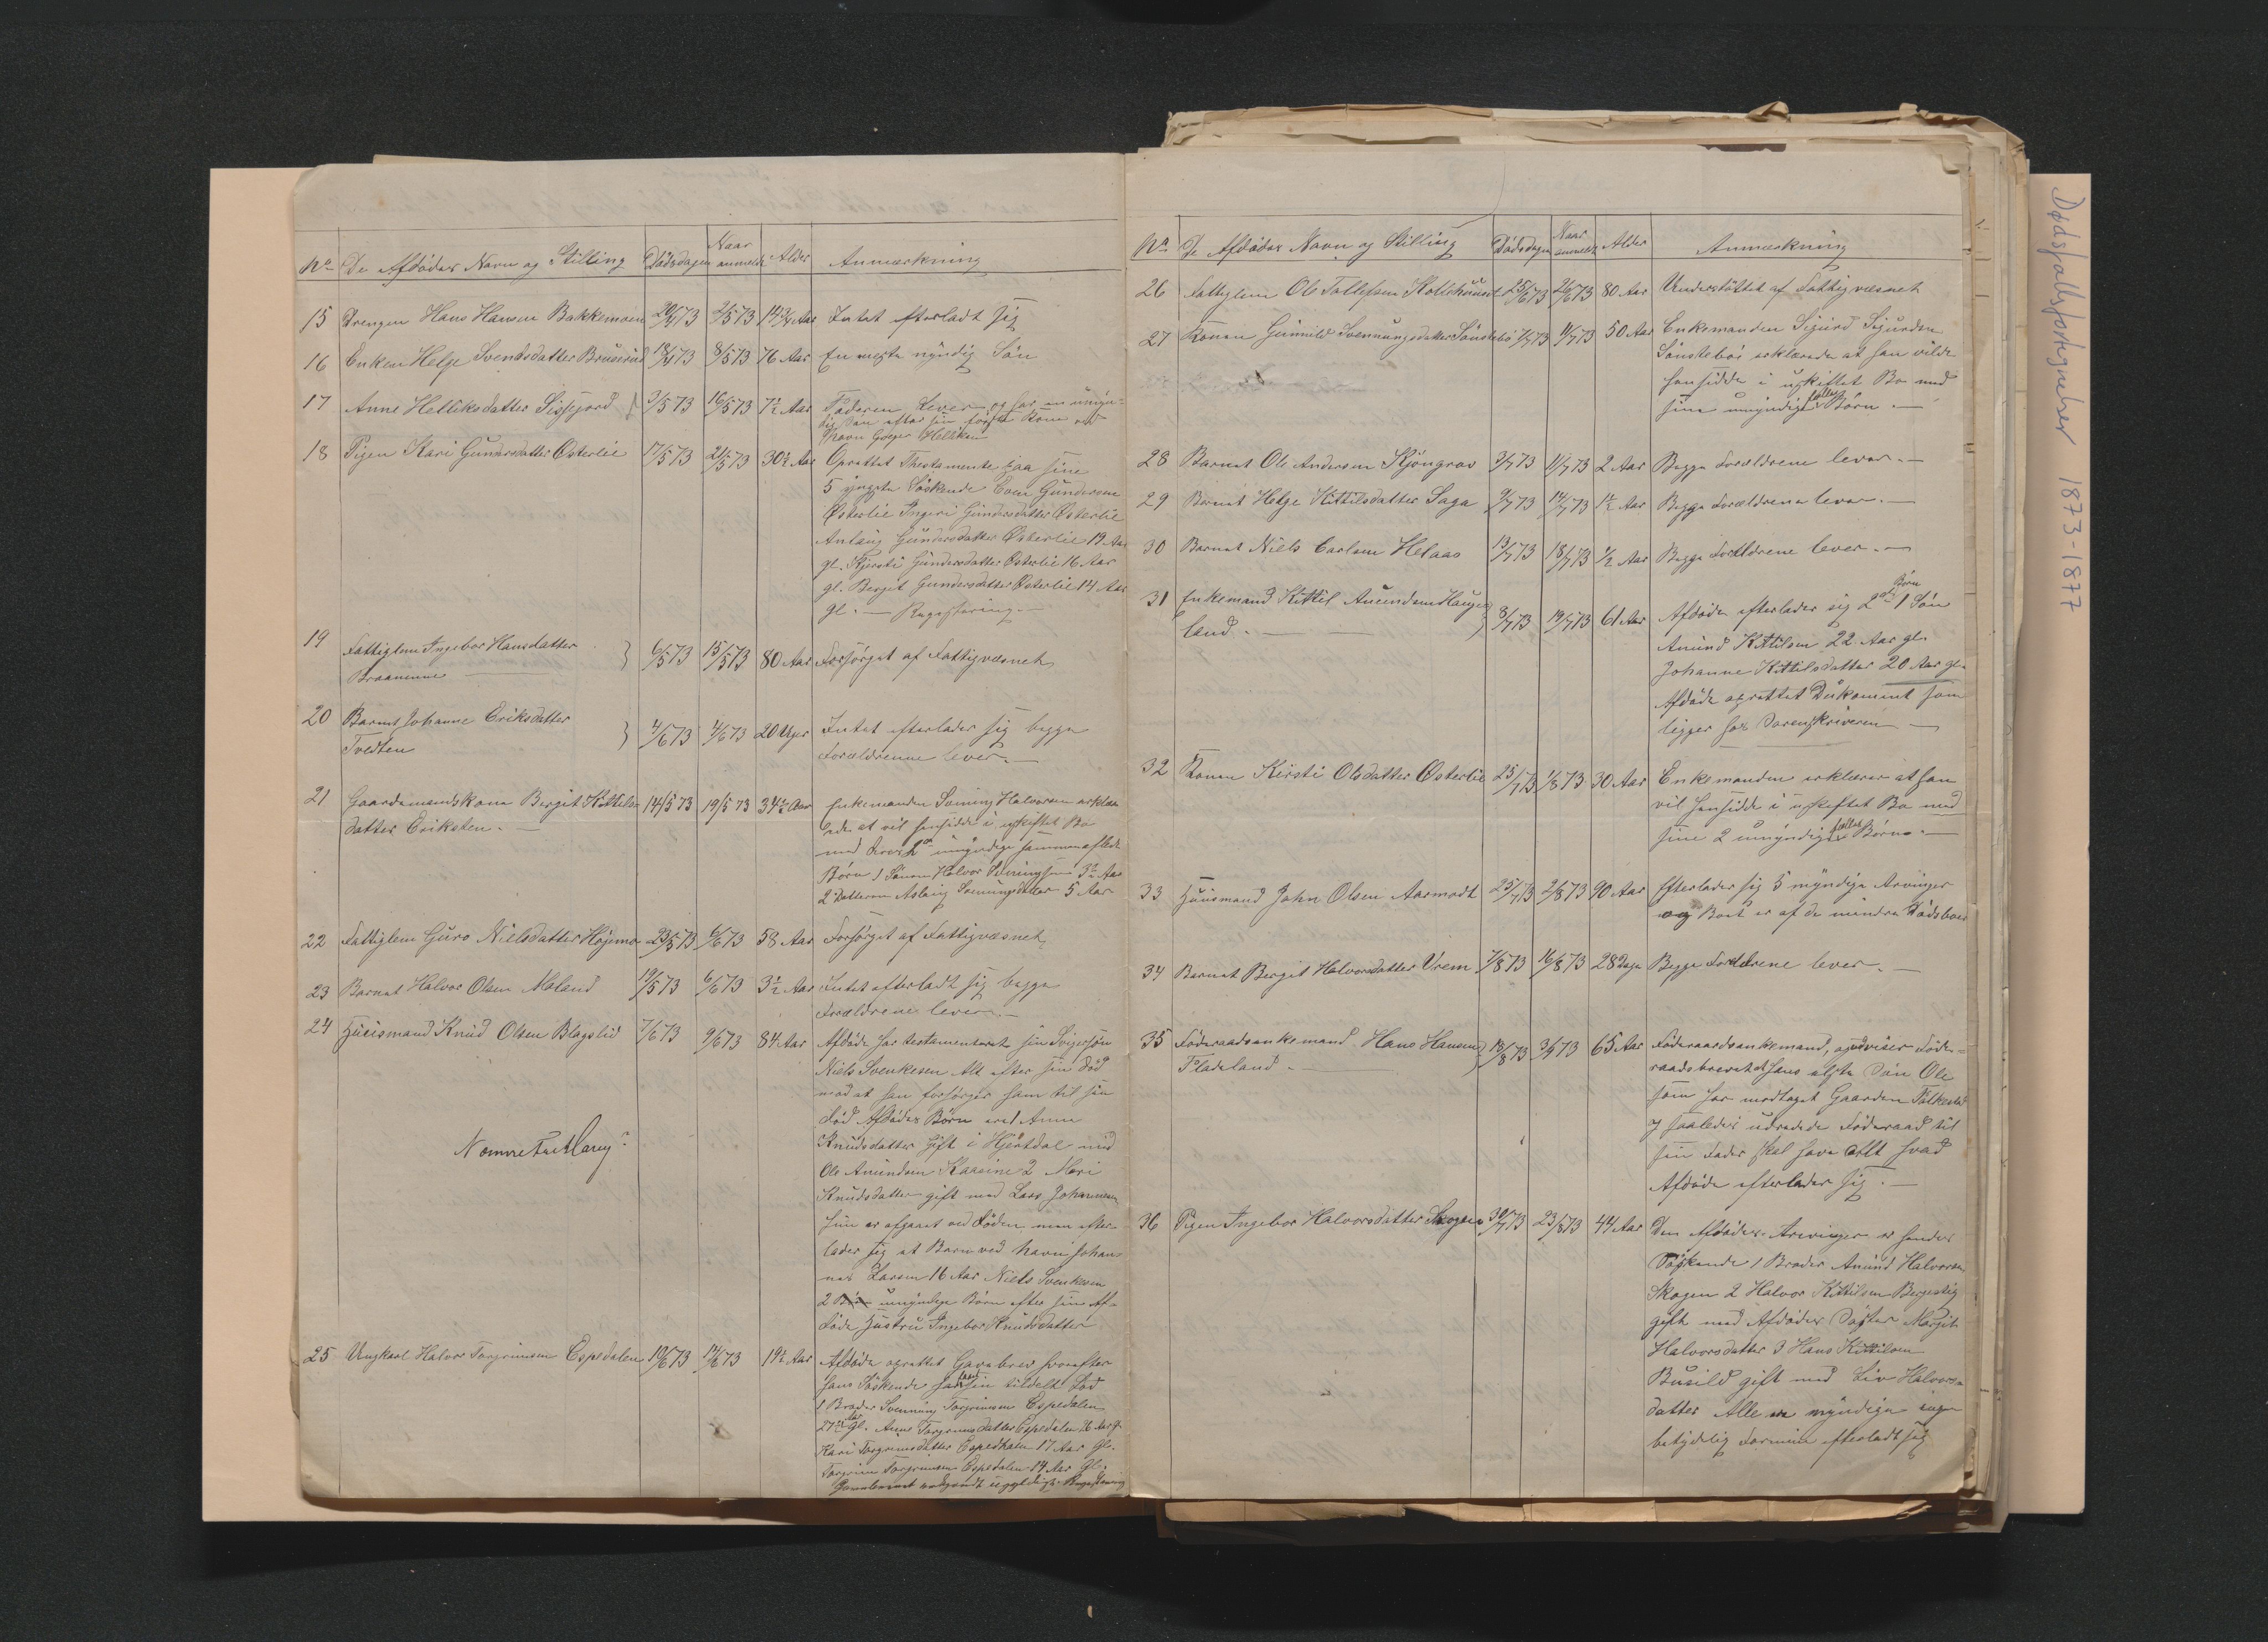 No De Afdødes Navn og Stilling Dødsdagen Naar anmeldt Alder Anmærkning
15 Drengen Hans Hansen Bakkemoen 20/4 73 2/5 73 14 3/4 Aar Intet efterladt sig
16 Enken Helge Svendsdatter Bruserud 18/4 73 8/5 73 76 Aar En myndig Søn
17 Anne Helliksdatter Sisjord 3/5 73 16/5 73 7 1/2 Aar Faderen Lever og har en umyn-
dig Søn efter sin første Kone ved
Navn Helliksen
18 Pigen Kari Gundersdatter Østerlie 17/5 73 21/5 73 30 1/2 Aar Oprettet Thestamente paa sine
5 yngste Söskende Even Gundersen
Østerlie Ingeri Gundersdatter Østerlie
Anlaug Gundersdatter Østerlie 19 Aar
gl. Kjersti Gundersdatter Østerlie 16 Aar
gl. Bergit Gundersdatter Østerlie 14 Aar
gl. —
19 Fattiglem Ingebor Hansdatter 6/5 73 15/5 73 80 Aar Forsørget af Fattigvæsnet
Braanenne
20 Barnet Johanne Eriksdatter 4/6 73 4/6 73 20 Uger Intet efterlader sig begge
Tvedten
Forældrenne lever. —
21 Gaardmandskone Bergit Kittils- 14/5 73 19/5 73 34 1/2 Aar Enkemanden Halvorsen erklæ-
datter Eriksten. —
rede at vil hensidde i uskiftet Bo
med 2de umyndige sammenaflede
Børn 1 Sønnen Halvor 3 1/2 Aar
2 Datteren Aslaug 5 Aar
22 Fattiglem Guro Nielsdatter Højemo 23/5 73 6/6 73 58 Aar Forsørget af Fattigvæsnet
23 Barnet Halvor Olsen Moland 19/5 73 6/6 73 3 1/2 Aar Intet efterladt sig begge
Forældrene lever. —
24 Husmand Knud Olsen Blagslid 7/6 73 9/6 73 84 Aar Afdøde har testamenteret sin Svigersøn
Niels Svenkesen Alt efter sin Død
mod at han forsørger ham til sin
Død Afdødes Børn er 1 Anne
Knudsdatter gift i Hjertdal med
Ole Amundsen Kaasine 2 Mari
Knudsdatter gift med Lars Johannesen
hun er afgaaet ved Døden men efter-
lader sig et Barn ved Navn Johan-
nes Larsen 16 Aar Niels Svenkesen
2 umyndige Børn efter sin Af-
døde Hustru Ingebor Knudsdatter
25 Ungkarl Halvor Torgrimsen Espedalen 10/6 73 14/6 73 19 1/2 Aar Afdøde oprettet Gavebrev hvorefter
hans Söskende sin tildelt Lod
1 Broder Svennung Torgrimsen Espedalen
27 Aar Gl. Anne Torgrimsdatter Espedalen 26 Aar gl.
Kari Torgrimsdatter Espedalen 17 Aar Gl.
Torgrim Torgrimsen Espedalen 14 Aar Gl.
Gavebrevet ugyldigt
No De Afdødes Navn og Stilling Dødsdagen Naar anmeldt Alder Anmærkning
26 Fattiglem Ole Tollefsen 25/6 73 26/6 73 80 Aar Understøttet af Fattigvæsnet
27 Konen Gunnild Svennungsdatter Sønstebø 1/7 73 11/7 73 50 Aar Enkemanden Sigurd Sigurdsen
Sønstebøi erklærede at han vilde
hensidde i uskiftet Bo med
sine umyndige fælles Børn. —
28 Barnet Ole Andersen Kjöngrav 3/7 73 11/7 73 2 Aar Begge Forældrene lever. —
29 Barnet Helge Kittilsdatter Saga 9/7 73 14/7 73 1 1/2 Aar Begge Forældrene lever. —
30 Barnet Niels Carlsen Helaas 13/7 73 18/7 73 1/2 Aar Begge Forældrene lever. —
31 Enkemand Kittil Amundsen Hauge- 8/7 73 19/7 73 61 Aar Afdøde efterlader sig 2de Børn 1 Søn
land. —
Amund Kittilsen 22 Aar gl.
Johanne Kittilsdatter 20 Aar gl.
Afdøde oprettet Dokument som
ligger hos Sorenskriveren —
32 Konen Kirsti Olsdatter Østerlie 25/7 73 1/8 73 30 Aar Enkemanden erklærer at han
vil hensidde i uskiftet Bo med
sine 2 umyndige fælles Børn. —
33 Husmand John Olsen Aarmodt 25/7 73 2/8 73 90 Aar Efterlader sig 5 myndige Arvinger
og Boet er af de mindre Dødsboer
34 Barnet Bergit Halvorsdatter Vrem 7/8 73 16/8 73 28 Dage Begge Forældrene lever. —
35 Føderaadsenkemand Hans Hansen 18/8 73 3/9 73 65 Aar Føderaadsenkemand, opviser Føde-
Fladeland. —
raadsbrevet at hans ælste Søn Ole
som har modtaget Gaarden
og saaledes udredede Föderaad til
sin Fader skal have Alt hvad
Afdøde efterlader sig. —
36 Pigen Ingebor Halvorsdatter Skogen 30/7 73 23/8 73 44 Aar Den Afdødes Arvinger er hendes
Søskende 1 Broder Amund Halvorsen
Skogen 2 Halvor Kittilsen Bergestig
gift med Afdødes Søster Margit
Halvorsdatter 3 Hans Kittilsen
Busild gift med Liv Halvors-
datter Alle er myndige ingen
betydelig Formue efterladt sig
Dødsfallsfortegnelser 1873-1877